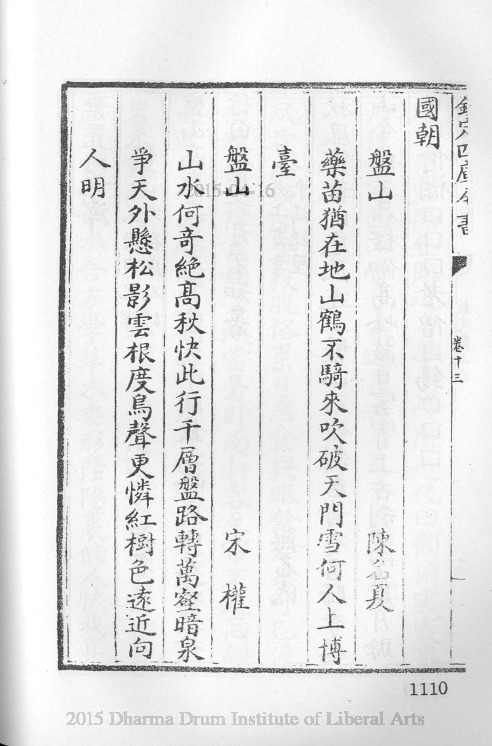 欽定四庫全書
卷十三
國朝
盤山 陳名夏
藥苗猶在地山鶴不騎來吹破天門雪何人上博
臺
盤山 宋權
山水何奇絶高秋快此行千層盤路轉萬壑暗泉
爭天外懸松影雲根度鳥聲更憐紅樹色遠近向
人明
1110
2015 Dharma Drum Institute of Liberal Arts